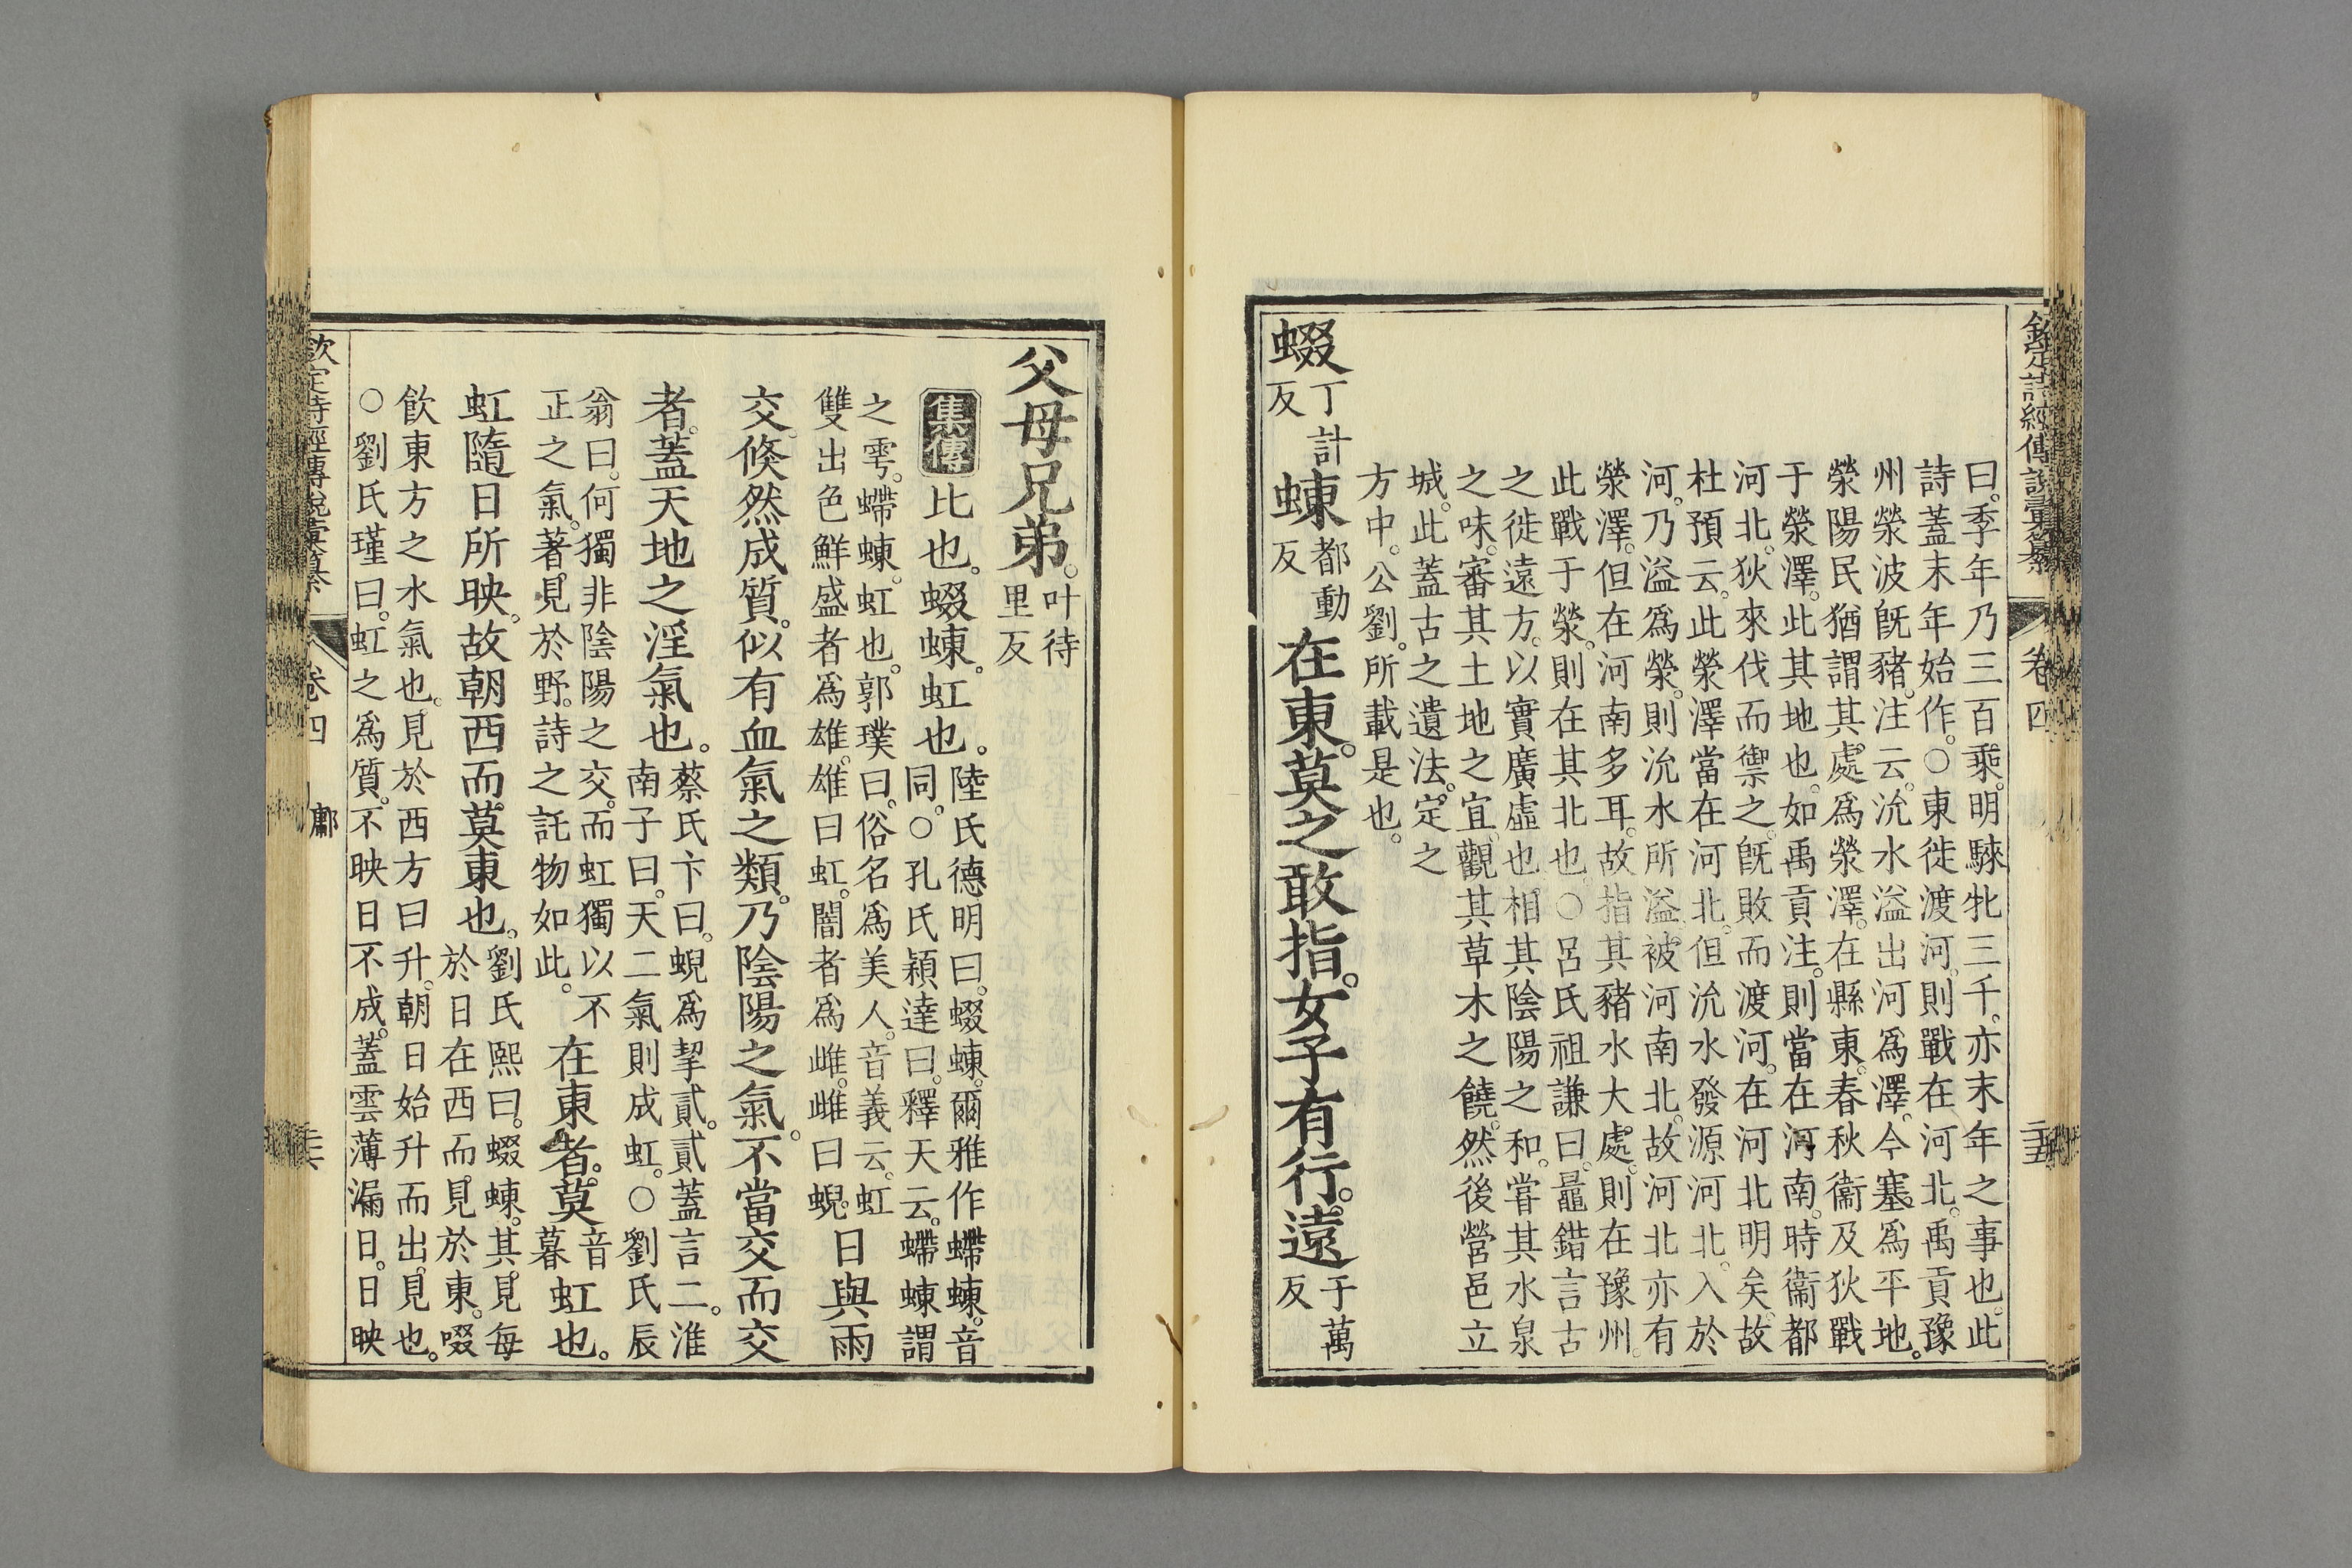 欽定詩經傳說彙纂 卷四
曰。季年乃三百乘。明騋牝三千。亦末年之事也。此
詩蓋末年始作。○東徙渡河。則戰在河北。禹貢豫
州滎波旣豬。注云。沇水溢出河爲澤。今塞爲平地。
滎陽民猶謂其處爲滎澤。在縣東。春秋衞及狄戰
于滎澤。此其地也。如禹貢注。則當在河南。時衞都
河北。狄來伐而禦之。旣敗而渡河。在河北明矣。故
杜預云。此滎澤當在河北。但沇水發源河北。入於
河。乃溢爲滎。則沇水所溢。被河南北。故河北亦有
滎澤。但在河南多耳。故指其豬水大處。則在豫州。
此戰于滎。則在其北也。○呂氏祖謙曰。鼂錯言古
之徙遠方。以實廣虛也。相其陰陽之和。嘗其水泉
之味。審其土地之宜。觀其草木之饒。然後營邑立
城。此蓋古之遺法。定之
方中。公劉。所載是也。
蝃丁計反蝀都動反在東。莫之敢指。女子有行。遠于萬反
父母兄弟。叶待里反
集傳 比也。蝃蝀。虹也。陸氏德明曰。蝃蝀。爾雅作螮蝀。音同。○孔氏穎達曰。釋天云。螮蝀謂
之雩。螮蝀。虹也。郭璞曰。俗名爲美人。音義云。虹雙出色鮮盛者爲雄。雄曰虹。闇者爲雌。雌曰蜺。日與雨
交。倏然成質。似有血氣之類。乃陰陽之氣。不當交而交
者。蓋天地之淫氣也。蔡氏卞曰。蜺爲挈貳。貳蓋言二。淮南子曰。天二氣則成虹。○劉氏辰
翁曰。何獨非陰陽之交。而虹獨以不正之氣。著見於野。詩之託物如此。在東者。莫音暮虹也。
虹隨日所映。故朝西而莫東也。劉氏熙曰。蝃蝀。其見每於日在西而見於東。啜
飮東方之水氣也。見於西方曰升。朝日始升而出見也。
○劉氏瑾曰。虹之爲質。不映日不成。蓋雲薄漏日。日映
欽定詩經傳說彙纂 卷四 鄘